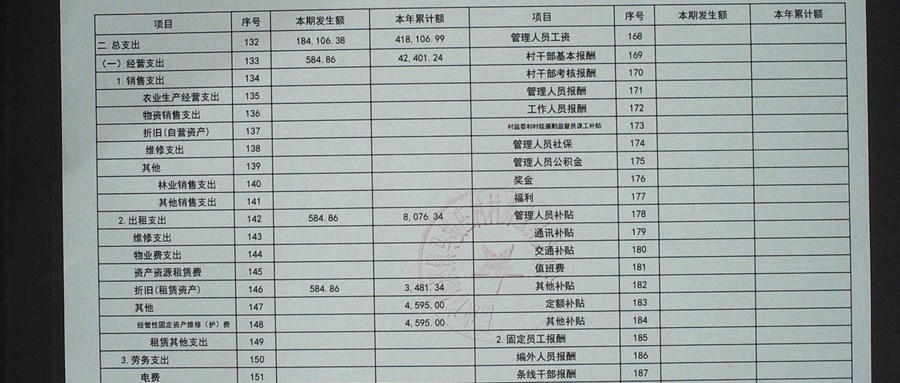 项目 序号 本期发生额 本年累计额 项目 序号 本期发生额 本年累计额
二 总支出 132 184,106.38 418,106.99 管理人员工资 168
（一）经营支出 133 584.86 42,401.24 村干部基本报酬 169
1.销售支出 134 村干部考核报酬 170
农业生产经营支出 135 管理人员报酬 171
物资销售支出 136 工作人员报酬 172
折旧(自营资产) 137 村监委和村级廉勤监督员误工补贴 173
维修支出 138 管理人员社保 174
其他 139 管理人员公积金 175
林业销售支出 140 奖金 176
其他销售支出 141 福利 177
2.出租支出 142 584.86 8,076.34 管理人员补贴 178
维修支出 143 通讯补贴 179
物业费支出 144 交通补贴 180
资产资源租赁费 145 值班费 181
折旧(租赁资产) 146 584.86 3,481.34 其他补贴 182
其他 147 4,595.00 定额补贴 183
经营性固定资产维修（护）费 148 4,595.00 其他补贴 184
租赁其他支出 149 2.固定员工报酬 185
3.劳务支出 150 编外人员报酬 186
电费 151 条线干部报酬 187